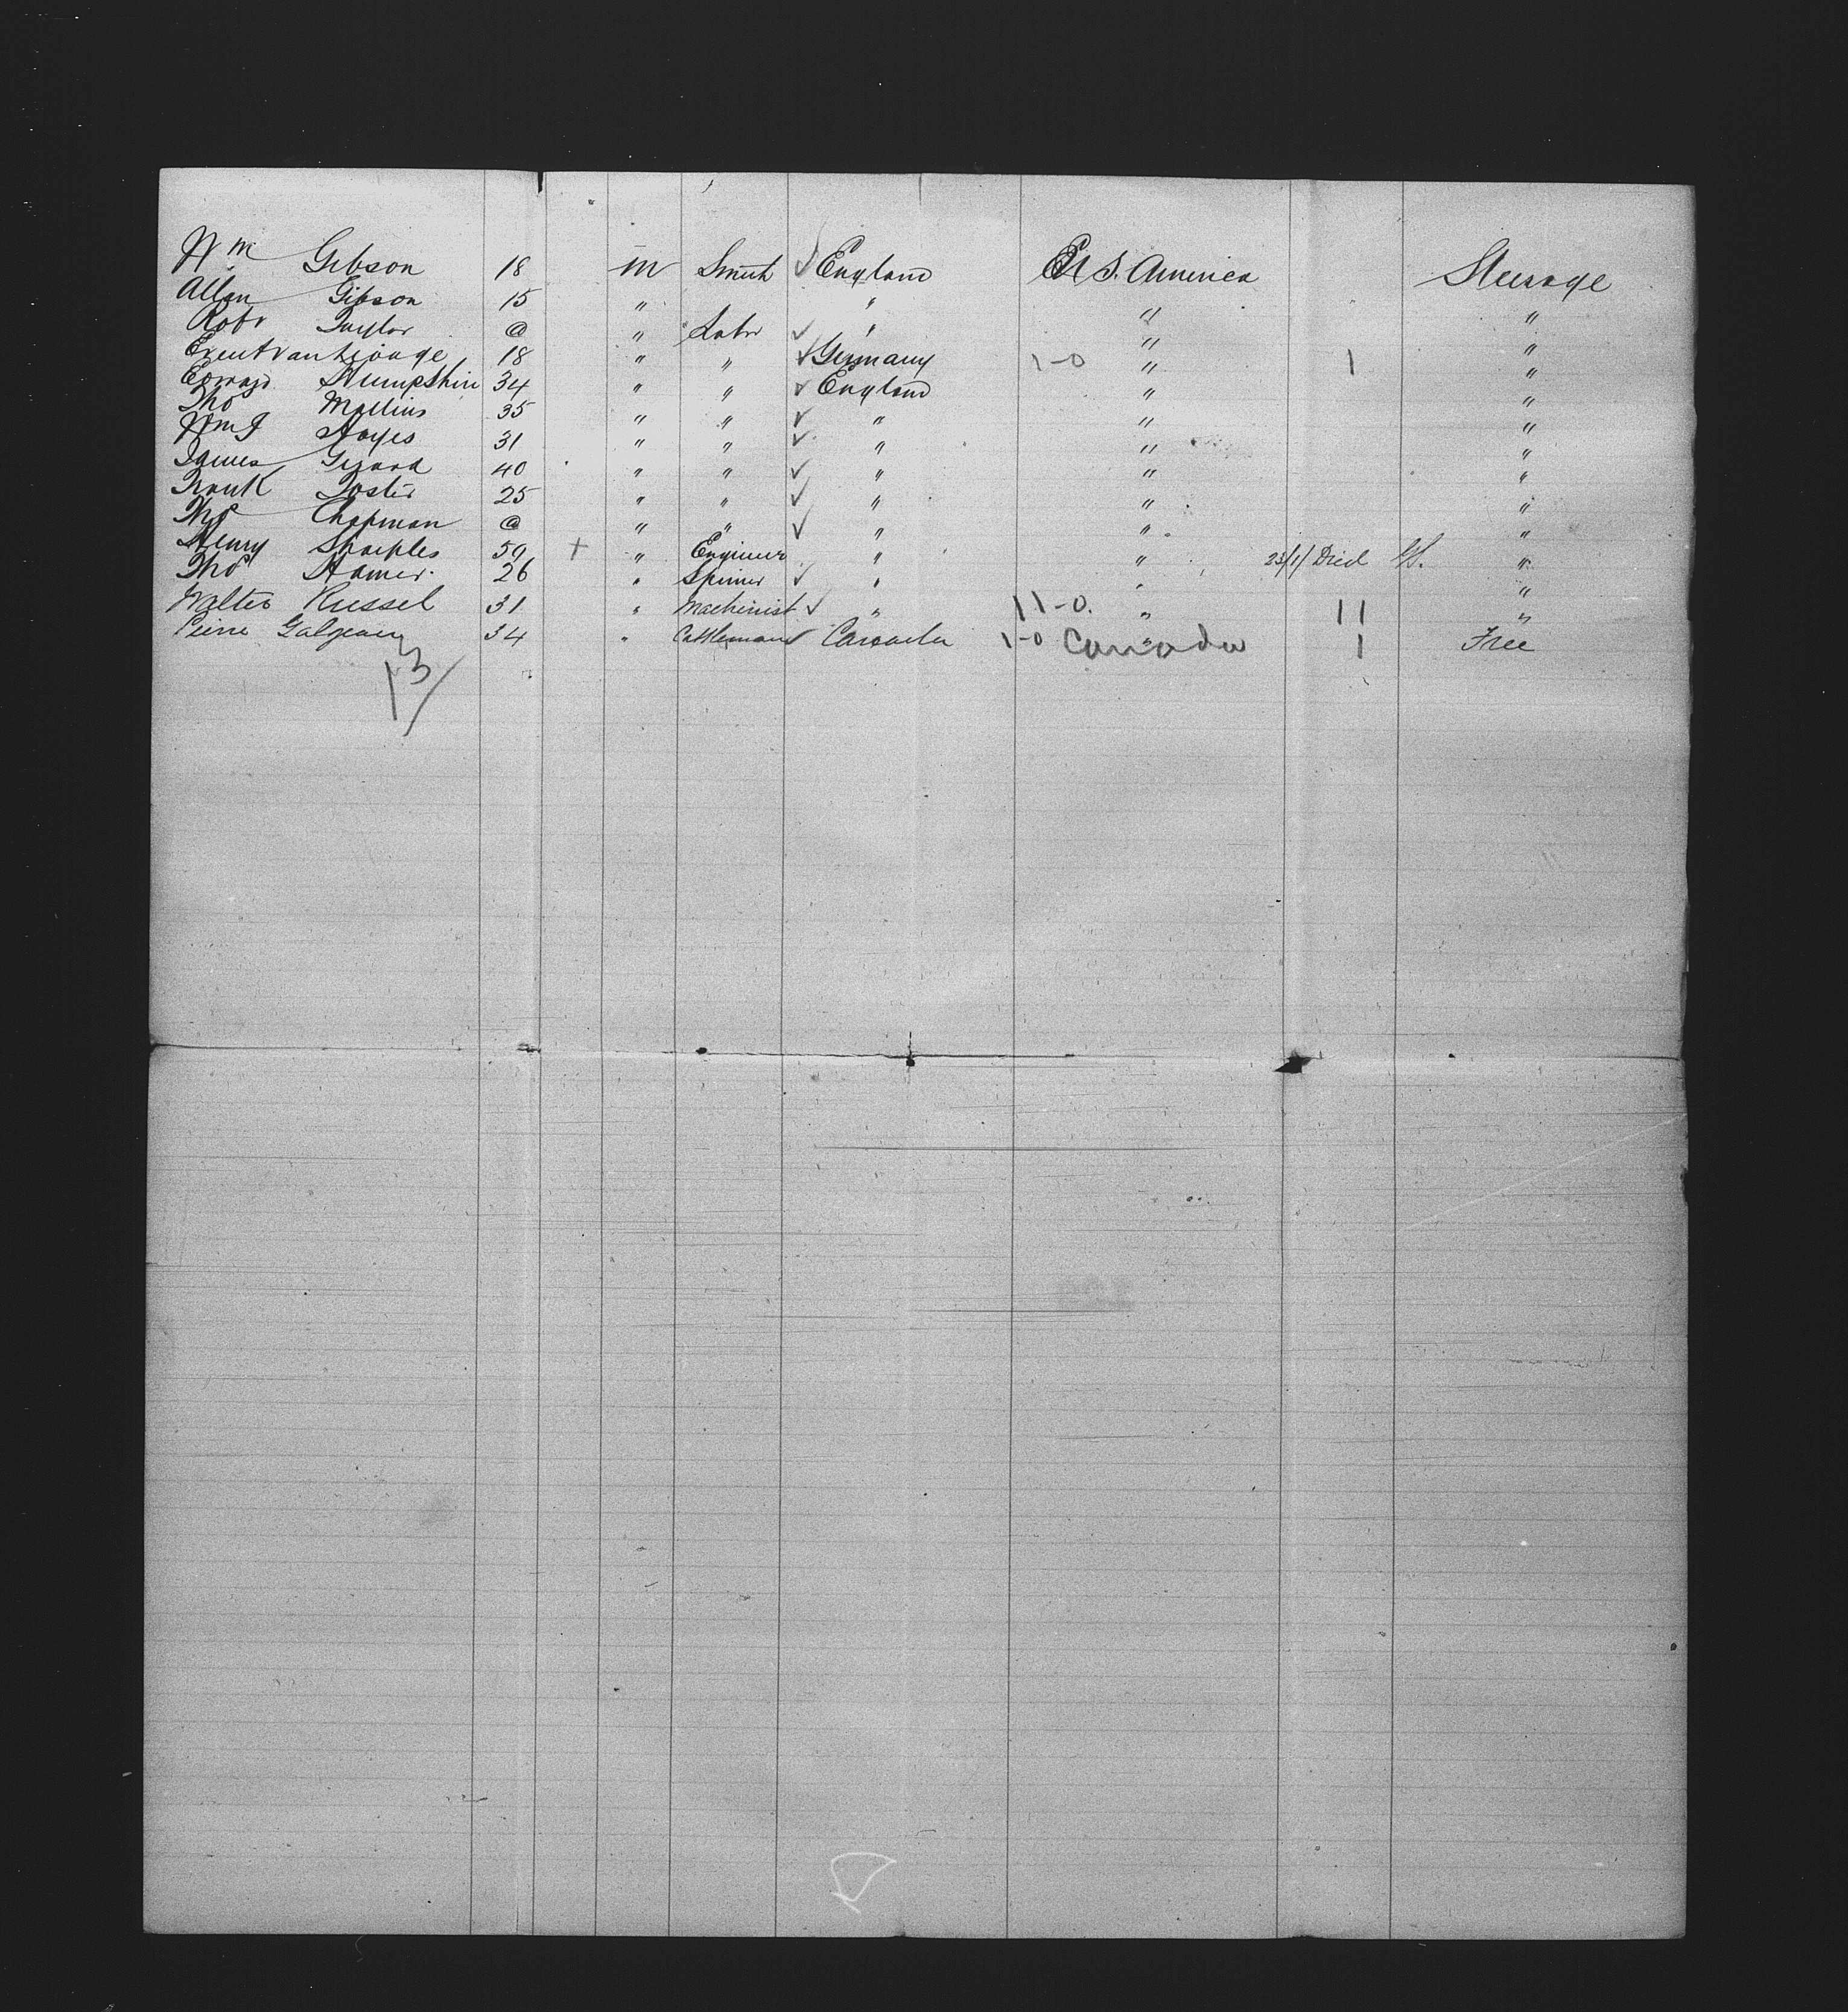 Wm Gibson 18 m Smith ✓ England U.S. America Steerage
Allan Gibson 15 " " " "
Robt Taylor @ " Labr ✓ " " "
18 " " ✓ Germany 1-0 " 1 "
Edward 34 " " ✓ England " "
Tho Mallins 35 " " ✓ " " "
Wm J Hayes 31 " " ✓ " " "
James 40 " " ✓ " " "
Frank Foster 25 " " ✓ " " "
Tho Chapman @ " " ✓ " " "
Henry Sharples 59 + " Engineer " " 23/1/ Died "
Tho Hamer 26 " Spinner ✓ " " "
Walter Russel 31 " Machinist ✓ " 11-0. " 11 "
Pierre 34 " Cattleman ✓ Canada 1-0 " Canada 1 Free
13/